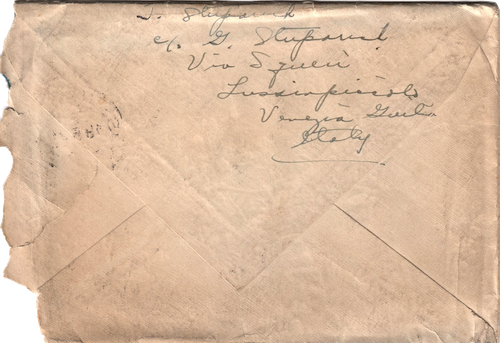 I. Stuparich
c/. G. Stuparich
Via Squeri
Lussinpiccolo
Venezia Giulia
Italy